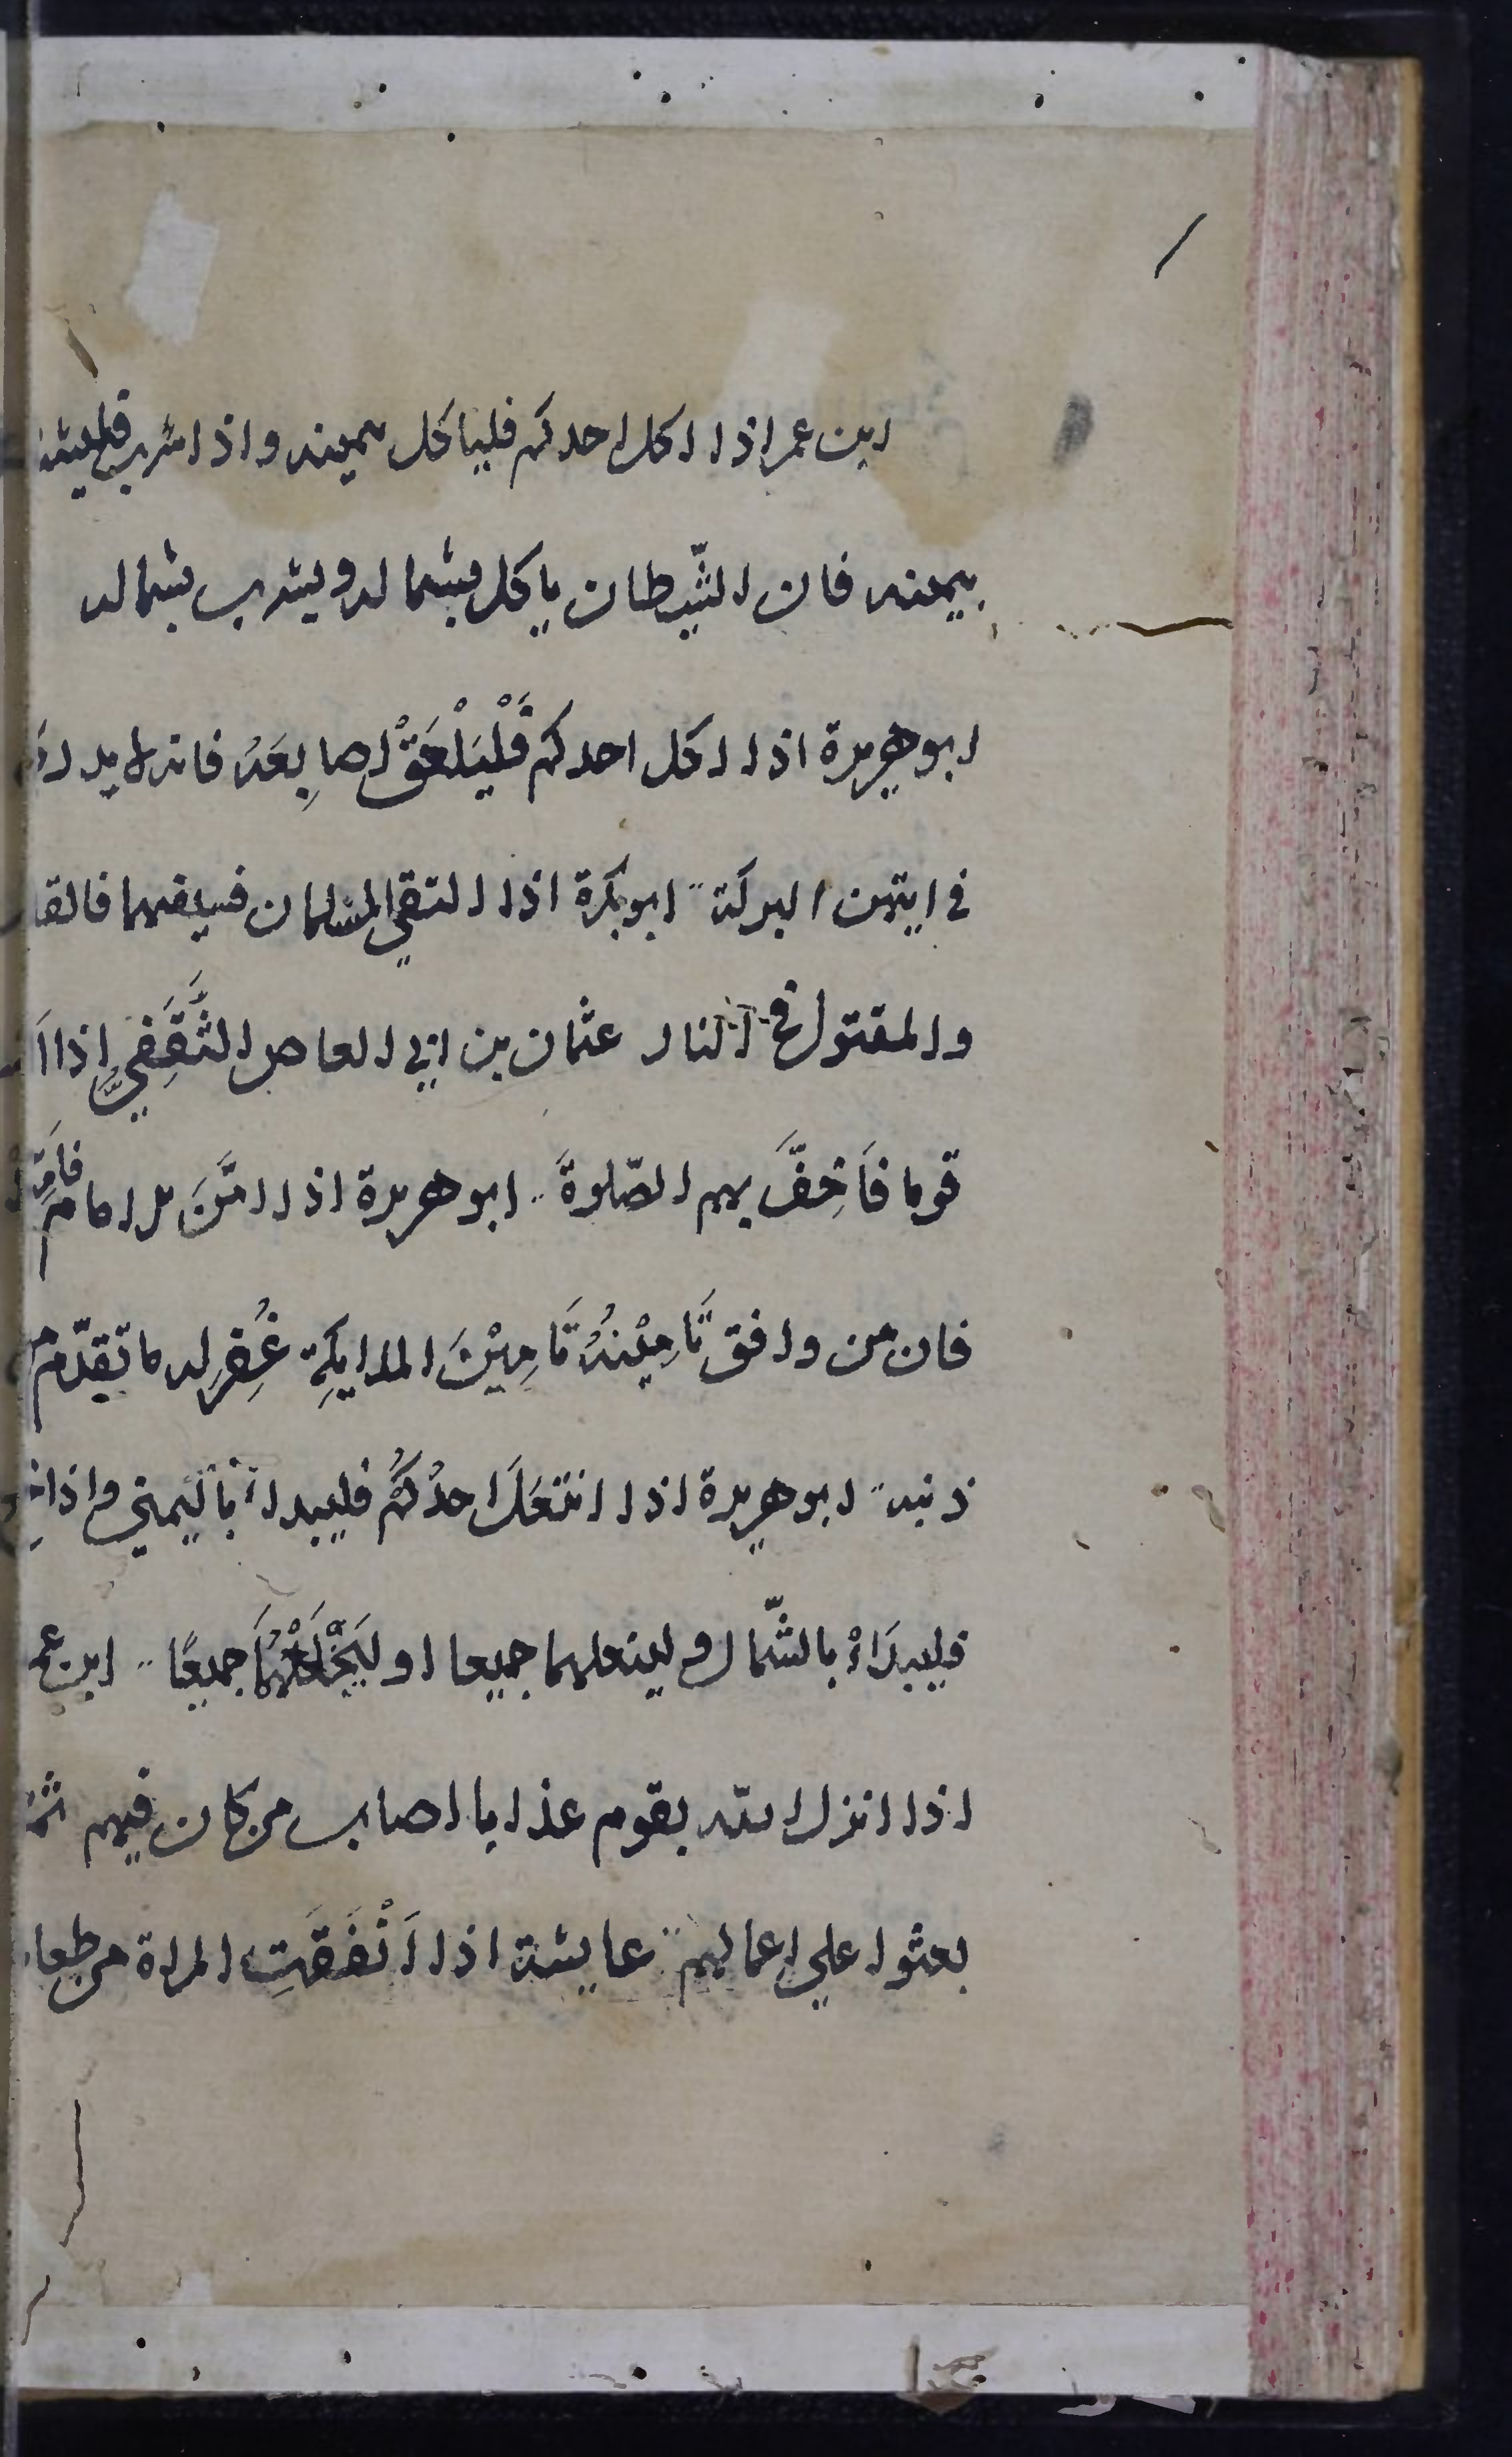 ابن عمر اذا اكل احدكم فلياكل بيمينه واذا شرب فليشرب
بيمينه فان الشّيطان ياكل بشماله ويشرب بشماله
ابو هريرة اذا اكل احدكم فَلْيَلْعَقْ اصابِعَهُ فانه لا يدري
في ايتهن البركة ابو بكرة اذا التقي المسلمان فسيفهما فالقا
والمقتول في النار عثمان بن ابي العاص الثَّقَفِيُّ اذا
قوما فَاَخِفَّ بهم الصّلوةَ ابو هريرة اذا امَّنَ الامام فَامِّ
فان من وافق تَامِيْنُهُ تَامِيْنَ الملايكِةِ غُفِرَ له ما تقدّم من
ذنبه ابو هريرة اذا انتَعَلَ احدُكُم فليبدا باليمني واذا
فليبدَاْ بالشّمال ولينعلهما جميعا او لِيَخْلَعْهُمَا جميعًا ابن عمر
اذا انزل الله بقوم عذابا اصاب من كان فيهم ثمّ
بعثوا علي اعمالهم عايشة اذا اَنْفَقَتِ المراة من طعا